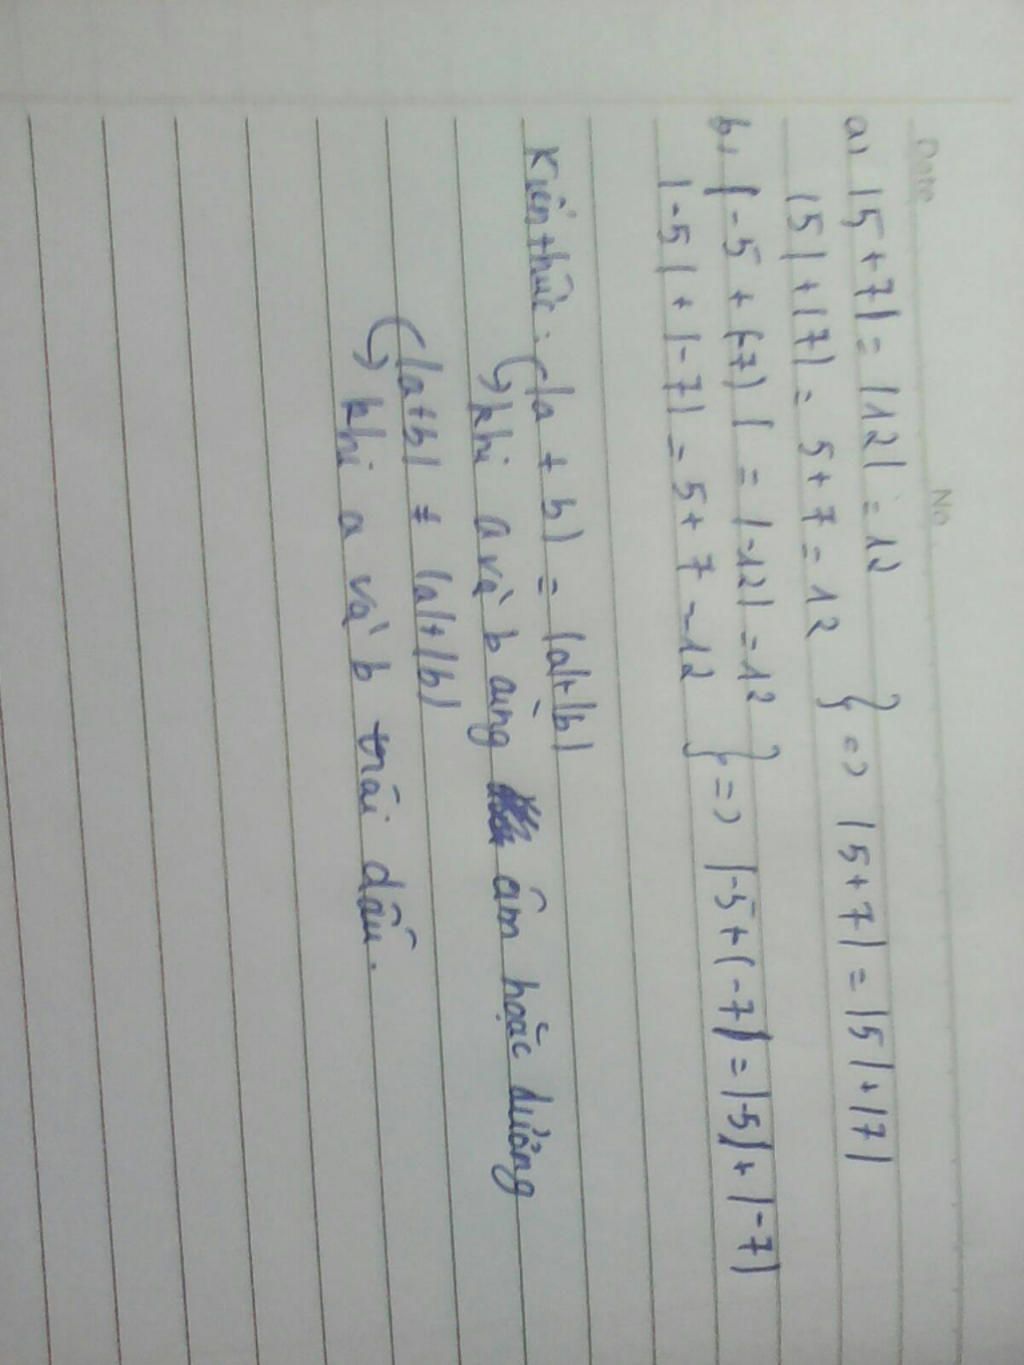 Date No
a) |5+7| = |12| = 12
|5| + |7| = 5+7 = 12 } => |5+7| = |5|+|7|
b) |-5 + (-7)| = |-12| = 12
|-5| + |-7| = 5+7 = 12 } => |-5+(-7)| = |-5| + |-7|
Kiến thức: |a + b| = |a|+|b|
↪ khi a và b cùng âm hoặc dương
|a+b| ≠ |a|+|b|
↪ khi a và b trái dấu.